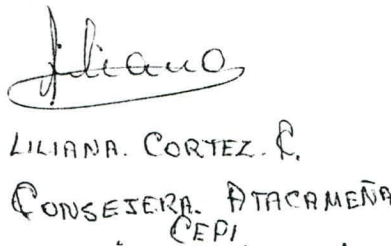 Liliana
LILIANA. CORTEZ. C.
CONSEJERA. ATACAMEÑA
CEPI